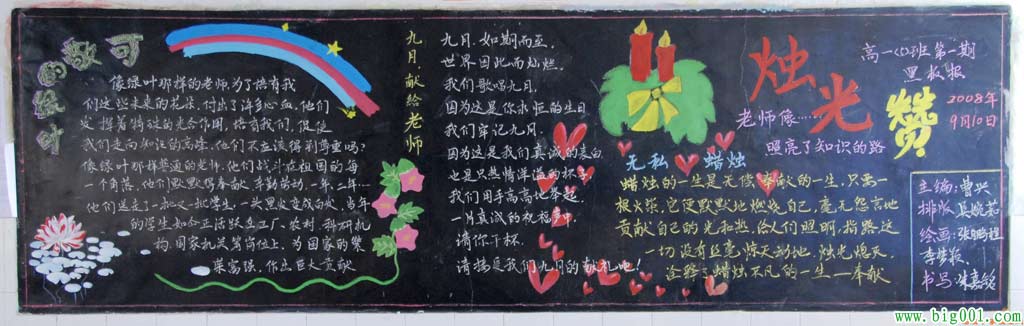 可敬的绿叶
像绿叶那样的老师,为了培育我
们这些未来的花朵,付出了许多心血,他们
发挥着特殊的光合作用,培育我们,促使
我们走向知识的高峰,他们不应该得到尊重吗?
像绿叶那样普通的老师,他们战斗在祖国的每
一个角落,他们默默得奉献,辛勤劳动,一年,二年…
他们送走了一批又一批学生,一头黑发变成白发,当年
的学生如今正活跃在工厂、农村、科研机
构、国家机关等岗位上,为国家的繁
荣富强,作出巨大贡献
九月,献给老师
九月,如期而至,
世界因此而灿烂。
我们歌唱九月,
因为这是你永恒的生日
我们牢记九月,
因为这是我们真诚的表白
也是只热情洋溢的杯子
我们用手高高地举起,
一片真诚的祝福声中
请你干杯,
请接受我们九月的献礼吧!
烛光
赞
高一(1)班第一期
黑板报
2008年
9月10日
老师像……
照亮了知识的路
无私 蜡烛
蜡烛的一生是无偿奉献的一生,只需一
根火柴,它便默默地燃烧自己,毫无怨言地
贡献自己的光和热,给人们照明,指路这
一切没有丝毫惊天动地,烛光熄灭,
诠释了蜡烛不凡的一生—奉献
主编:曹兴
排版:吴婉茹
绘画:张鹏程
李梦
书写:朱嘉铭
www.big001.com